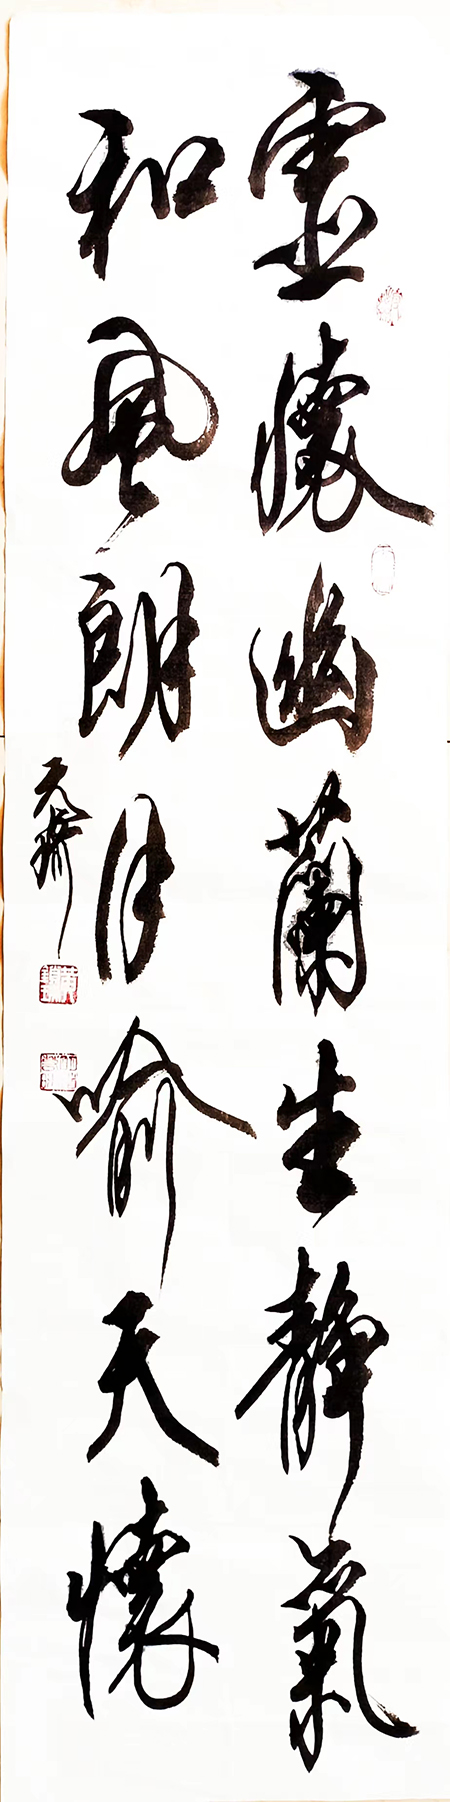 虚懷幽蘭生靜氣
和風朗月喻天懷
元齋